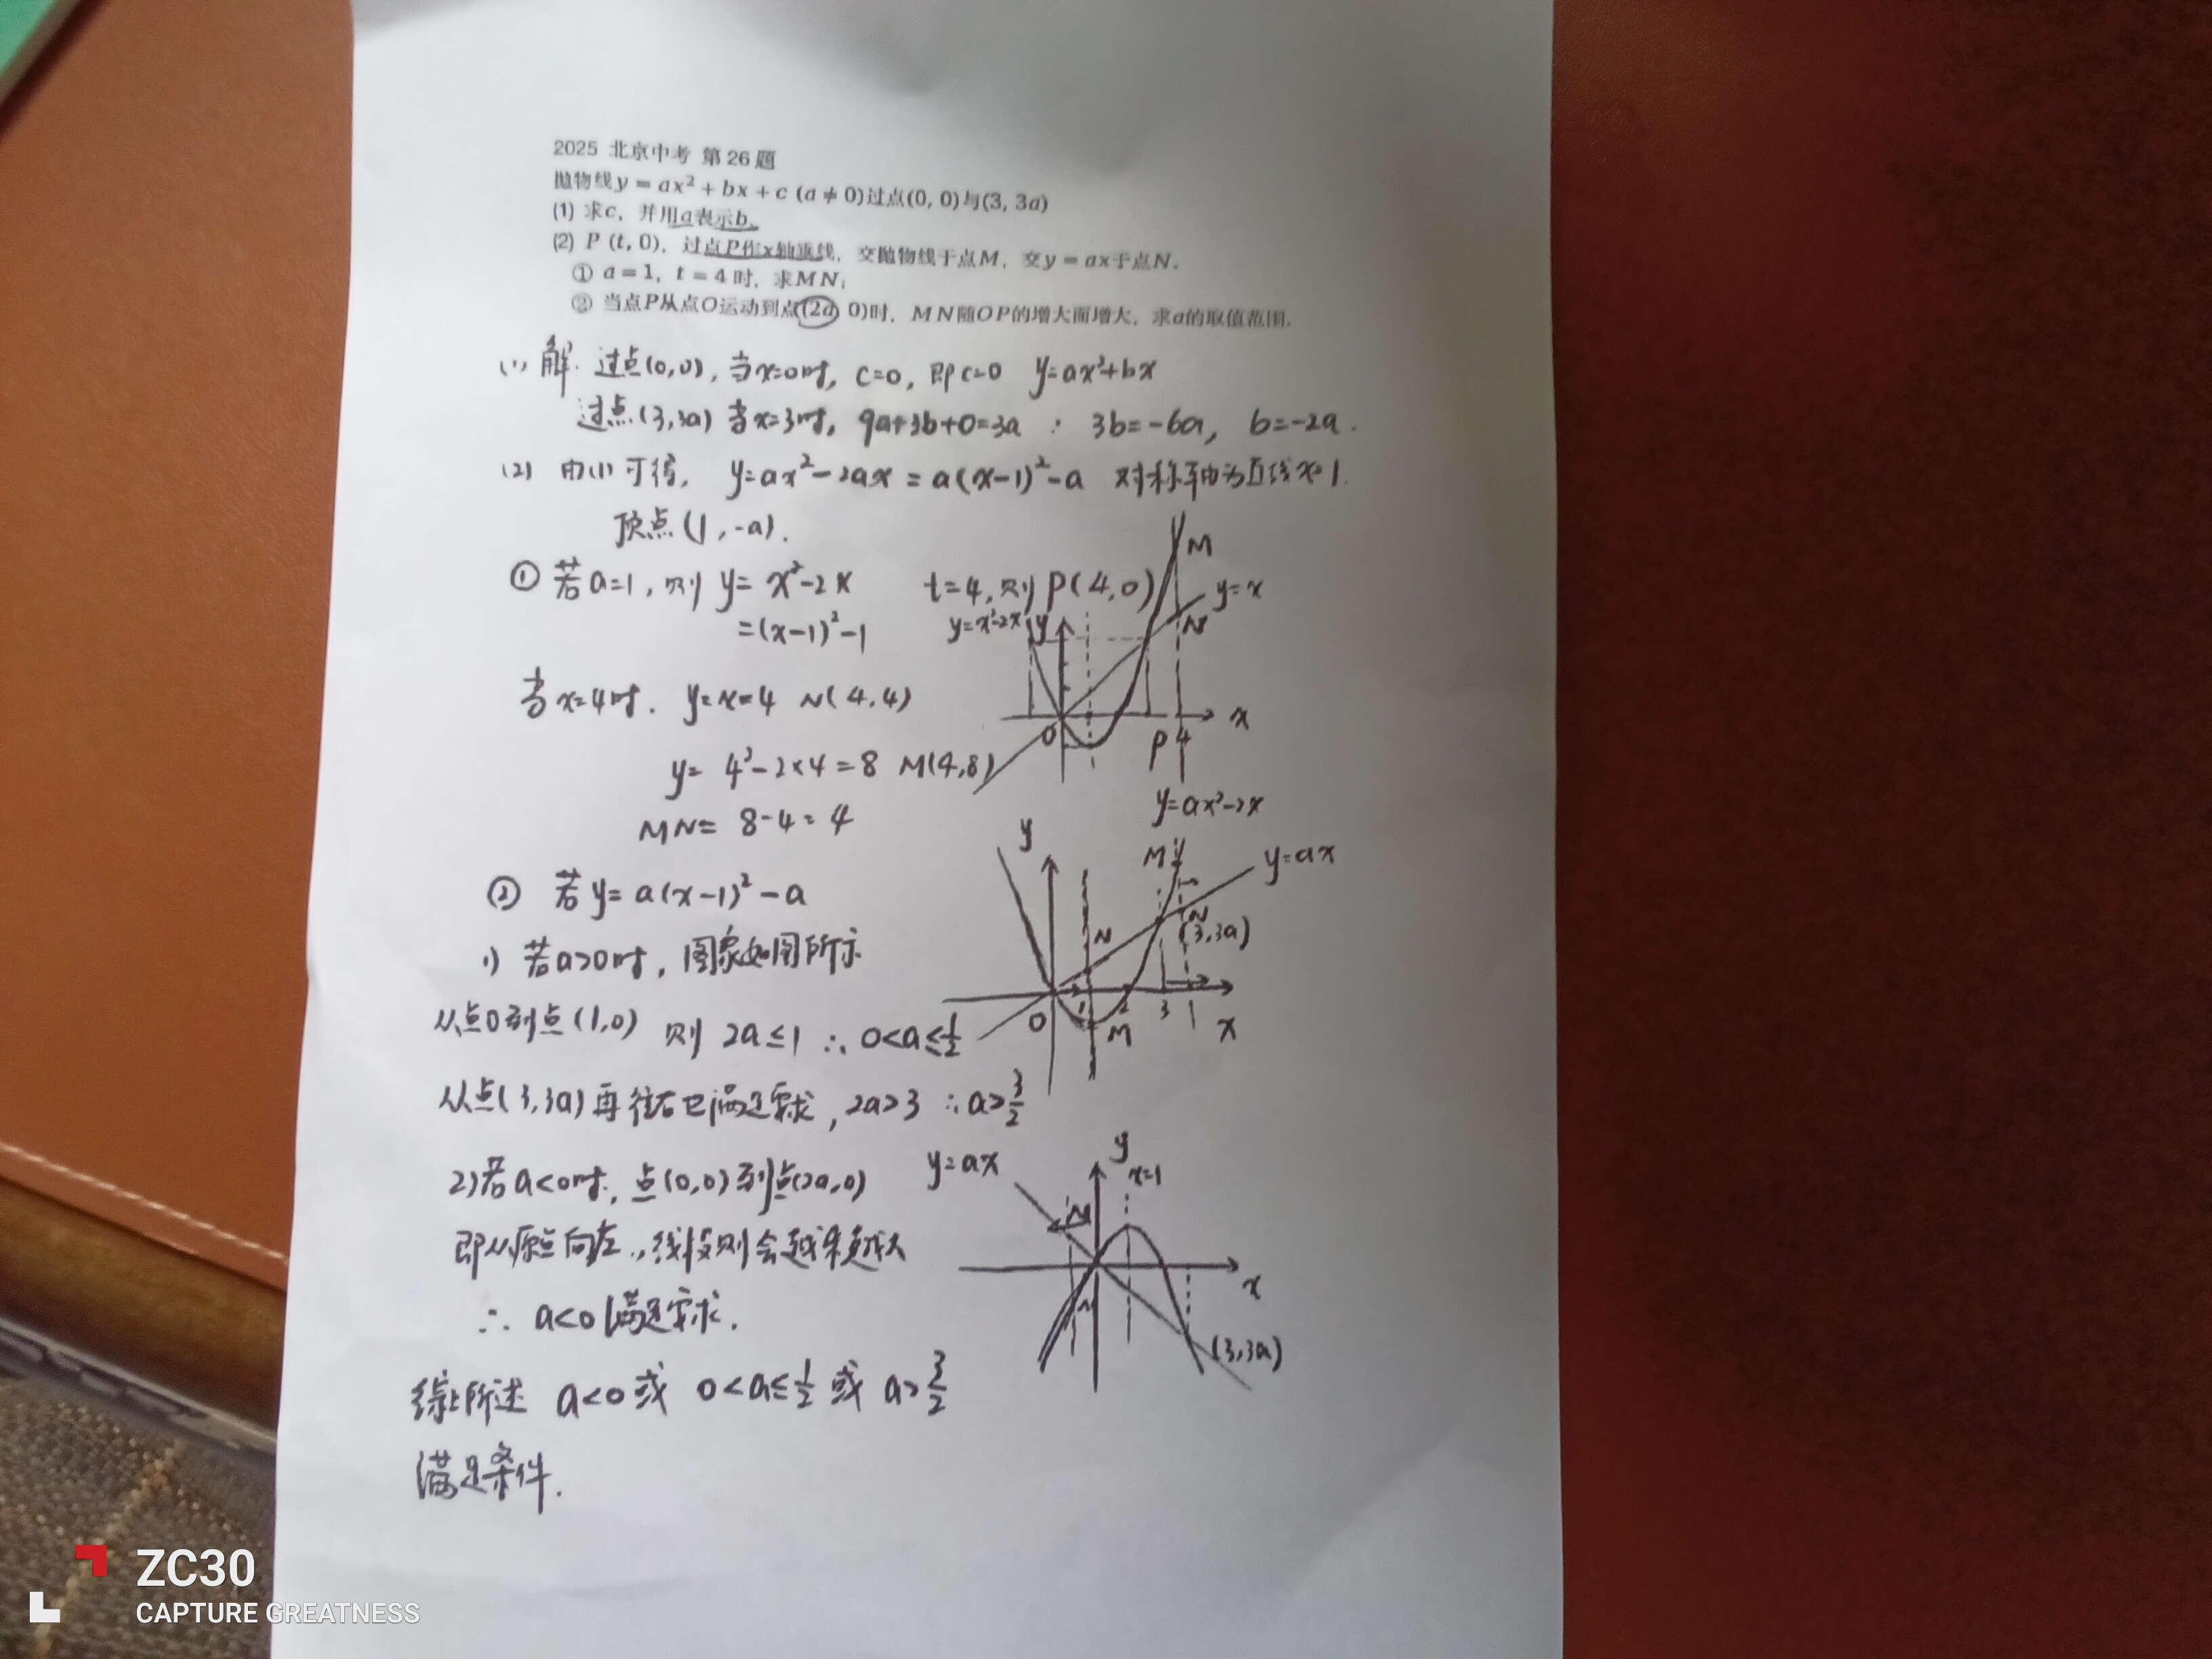 2025 北京中考 第26题
抛物线y = ax² + bx + c (a ≠ 0)过点(0, 0)与(3, 3a)
(1) 求c，并用a表示b。
(2) P (t, 0)，过点P作x轴垂线，交抛物线于点M，交y = ax于点N.
① a = 1，t = 4 时，求MN;
② 当点P从点O运动到点(2a, 0)时，MN随OP的增大而增大，求a的取值范围.
(1) 解. 过点(0,0), 当x=0时, c=0, 即c=0 y=ax²+bx
过点(3,3a) 当x=3时, 9a+3b+0=3a ∴ 3b=-6a, b=-2a.
(2) 由(1)可得, y=ax²-2ax = a(x-1)²-a 对称轴为直线x=1.
顶点(1,-a).
① 若a=1, 则 y= x²-2x t=4, 则 P(4,0)
=(x-1)²-1
y=x²-2x
y
M
y=x
N
O
1
P
4
x
当x=4时. y=x=4 N(4,4)
y= 4²-2×4=8 M(4,8)
MN= 8-4=4
② 若y= a(x-1)²-a
1) 若a>0时, 图象如图所示
从点0到点(1,0) 则 2a≤1 ∴ 0<a≤1/2
从点(3,3a)再往右也满足要求, 2a>3 ∴ a>3/2
y=ax²-2x
y
M
y=ax
N
N
(3,3a)
O
1
2
M
3
x
2)若a<0时, 点(0,0)到点(2a,0)
即从原点向左, 线段则会越来越大
∴ a<0满足要求.
y=ax
y
x=1
N
x
(3,3a)
综上所述 a<0 或 0<a≤1/2 或 a>3/2
满足条件.
ZC30
CAPTURE GREATNESS